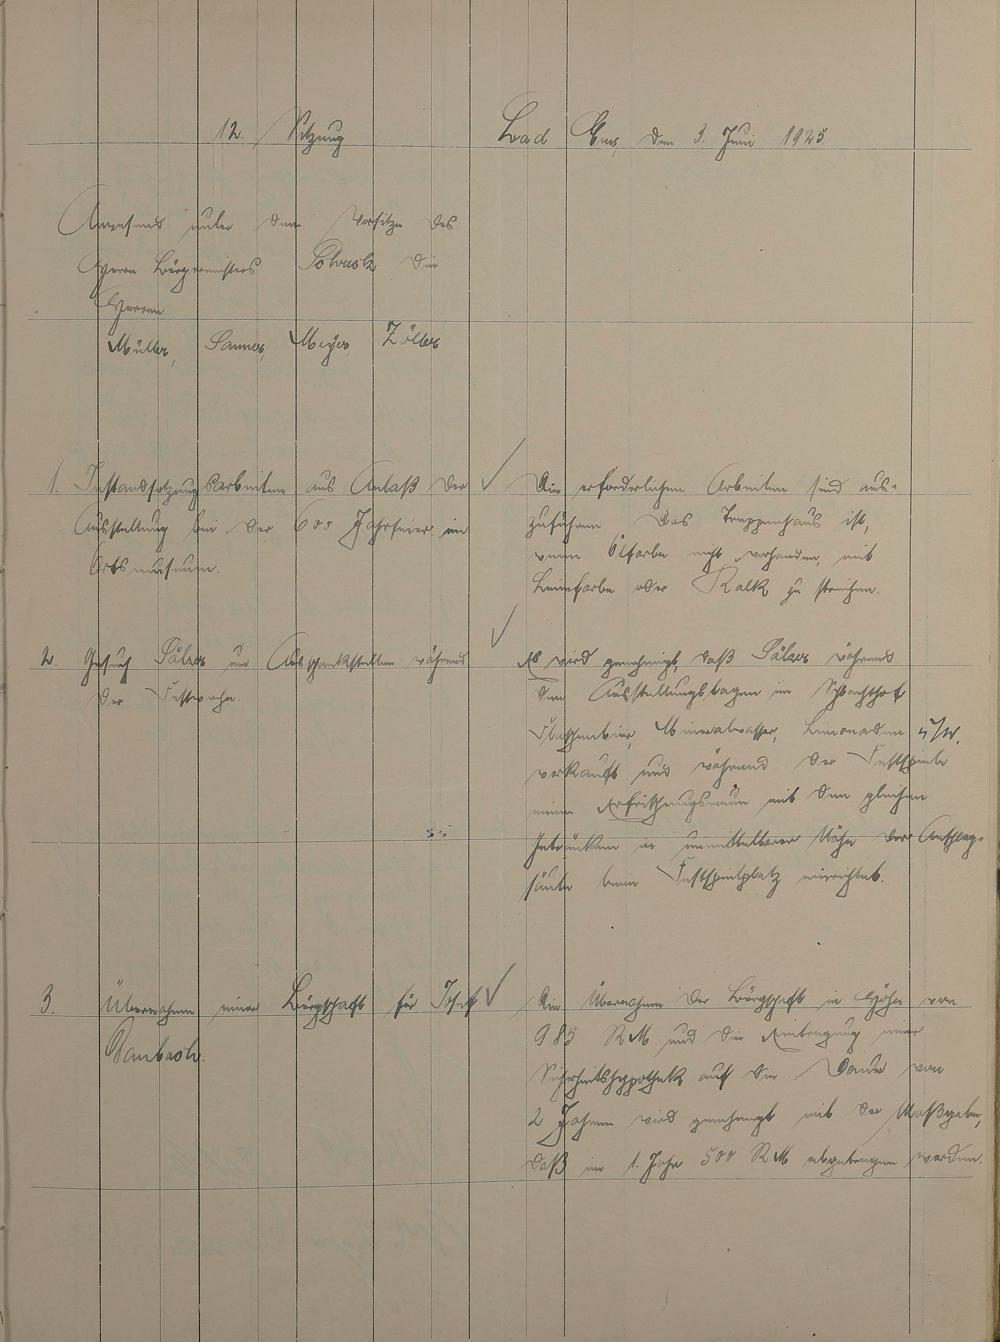 12. Sitzung
Bad Ems, den 3. Juni 1925.
Anwesend unter dem Vorsitze des
Herrn Bürgermeisters die
Herren
Müller, Sauner, Meyer, Zöller
1. Instandsetzungsarbeiten aus Anlaß der
Ausstellung bei der 600 Jahrfeier im
Ortsmuseum.
Die erforderlichen Arbeiten sind aus-
zuführen. Das Treppenhaus ist,
wenn Ölfarbe nicht vorhanden, mit
Leimfarbe oder Kalk zu streichen.
2. Gesuch Sälzer um Ausschankstellen während
der Festwoche.
Es wird genehmigt, daß Sälzer während
den Ausstellungstagen im Schlachthof
Flaschenbier, Mineralwasser, Limonaden usw.
verkauft und während der Festspiele
einen Erfrischungsraum mit den gleichen
Getränken in unmittelbarer Nähe der Anschlag-
säule beim Festspielplatz einrichtet.
3. Übernahme einer Bürgschaft für Josef
Baubach.
Die Übernahme der Bürgschaft in Höhe von
985 RM und die Eintragung einer
Sicherheitshypothek auf die Dauer von
2 Jahren wird genehmigt mit der Maßgabe,
daß im 1. Jahr 500 RM abgetragen werden.